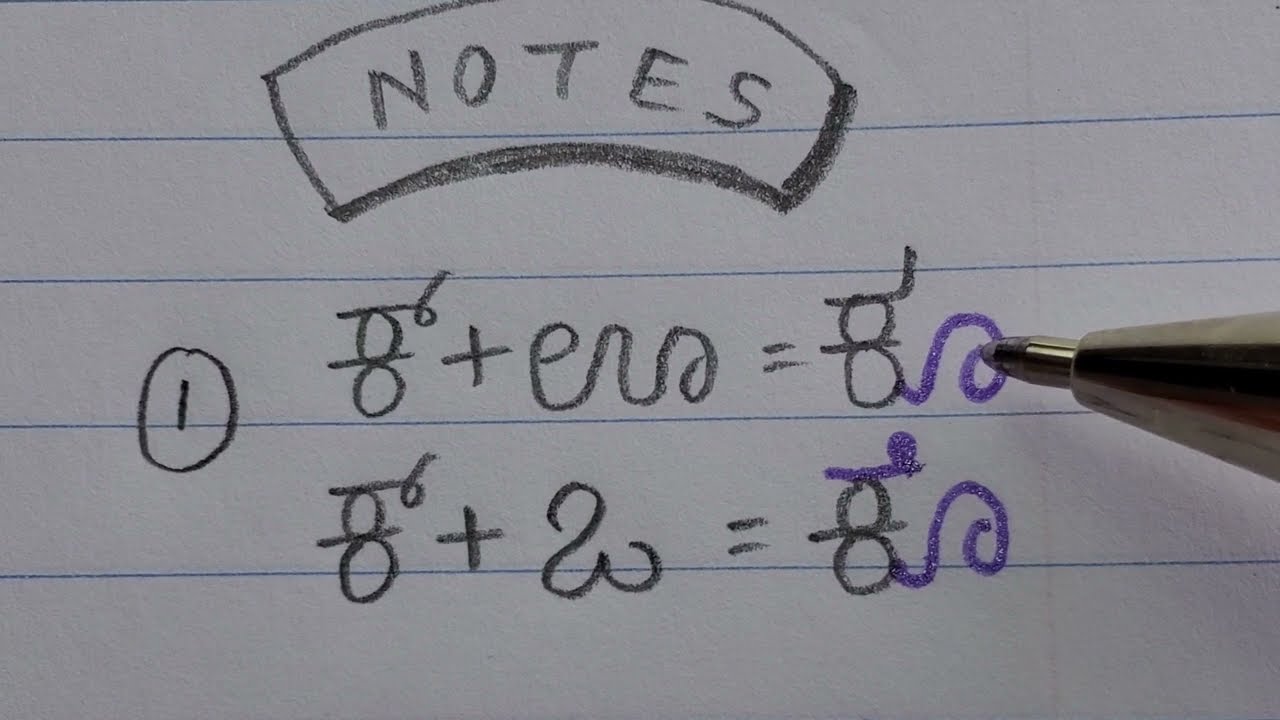 NOTES
① ಕ್ + ಊ = ಕೂ
ಕ್ + ಒ = ಕೊ